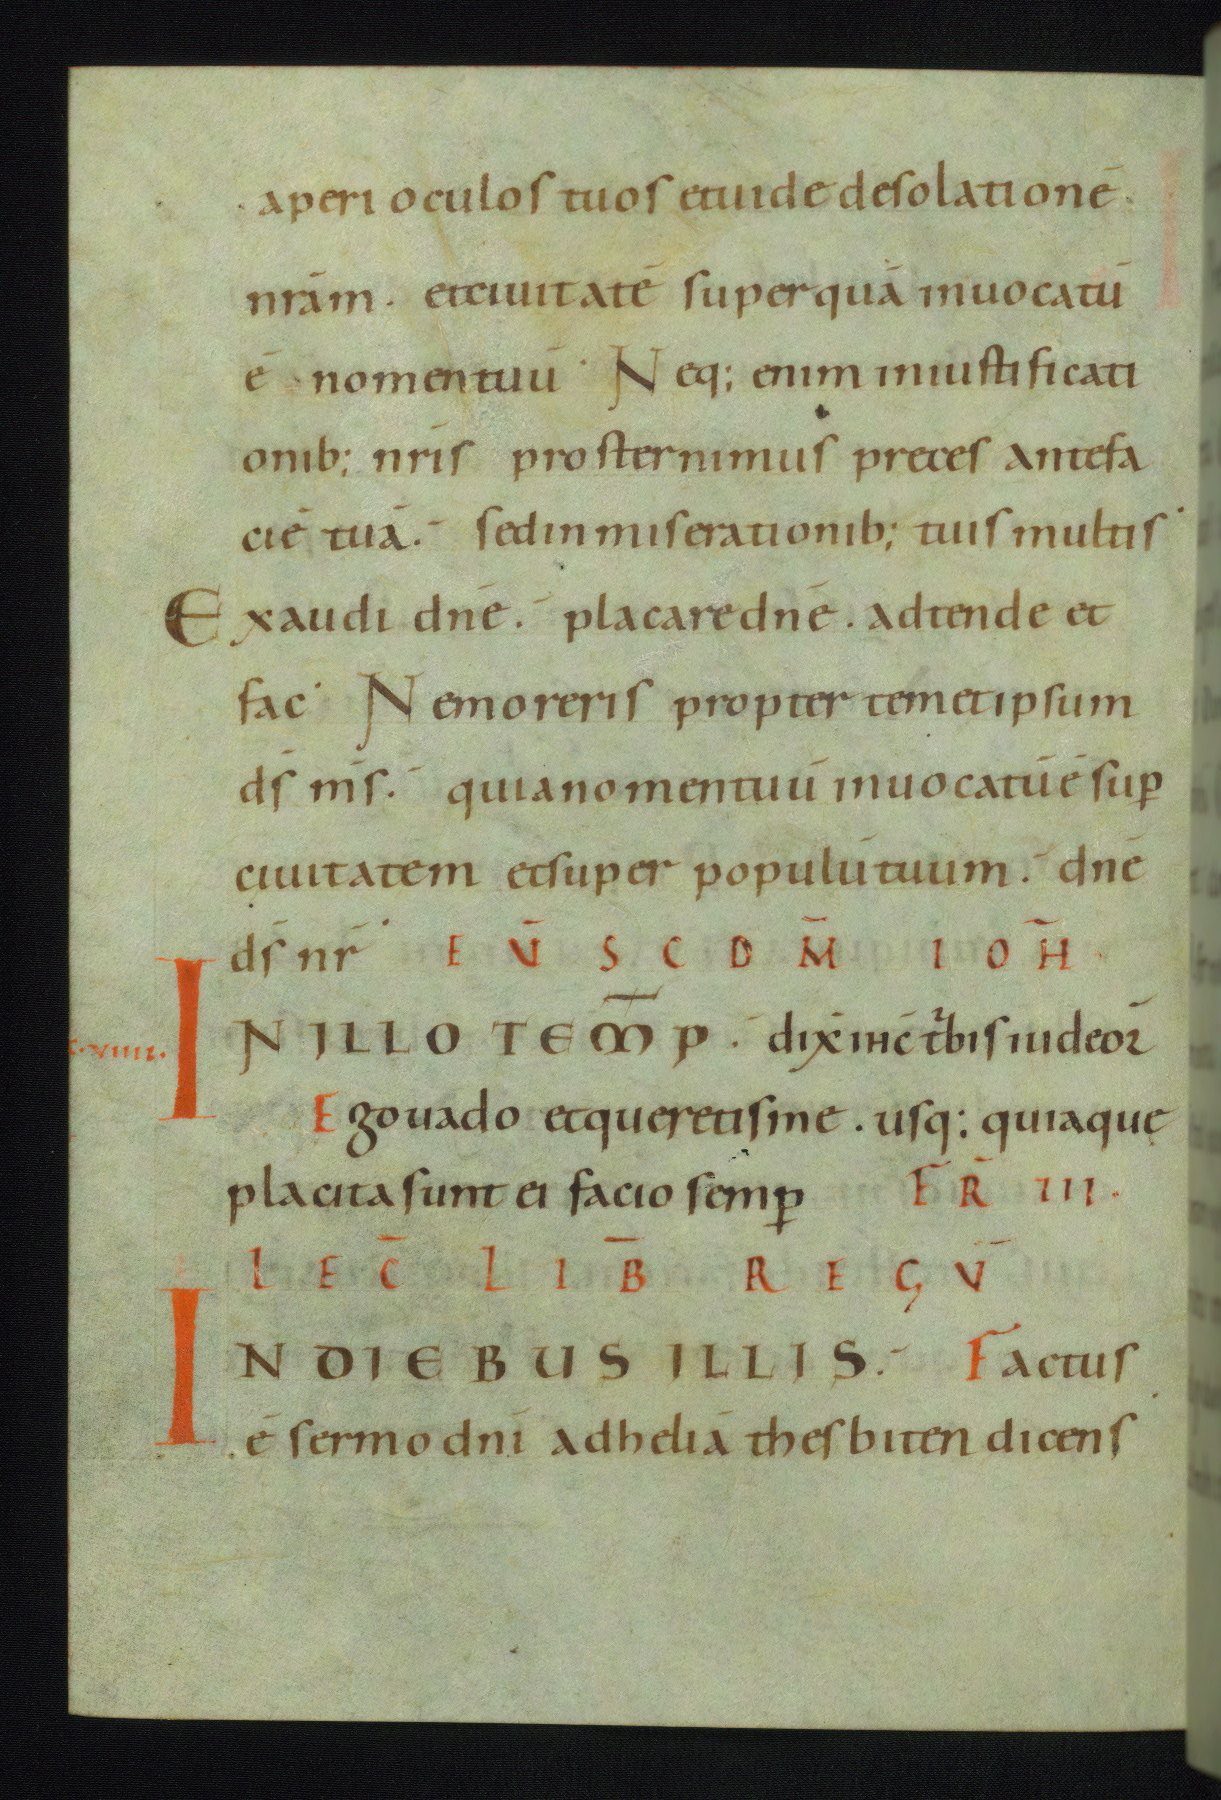 aperi oculos tuos et uide desolationē.
nrām. et ciuitatē super quā inuocatū
ē nomen tuū. Neq; enim in iustificati
onib; nrīs prosternimus preces ante fa
ciē tuā. sed in miserationib; tuis multis.
Exaudi dnē. placare dnē. adtende et
fac. Ne moreris propter temetipsum
ds̄ ms̄. quia nomen tuū inuocatū ē sup̄
ciuitatem et super populū tuum. dnē
ds̄ nr̄ EV̄ SCDM̄ IOH̄.
IN ILLO TEMP̄. dix̄ ihc̄ t̄bis iudeoꝝ
c. viiii.
Ego uado et queretis me. usq; quia quę
placita sunt ei facio semp̄ FR̄ III.
LEC̄ LIB̄ REGV̄
IN DIEBUS ILLIS. Factus
ē sermo dnī ad heliā thesbiten dicens